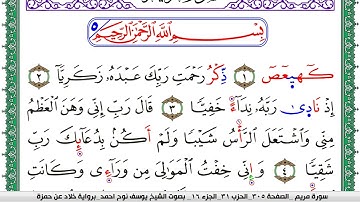 بِسْمِ اللَّهِ الرَّحْمَٰنِ الرَّحِيمِ
كٓهيعٓصٓ ١ ذِكْرُ رَحْمَتِ رَبِّكَ عَبْدَهُۥ زَكَرِيَّآءَ ٢
إِذْ نَادَىٰ رَبَّهُۥ نِدَآءً خَفِيًّا ٣ قَالَ رَبِّ إِنِّى وَهَنَ الْعَظْمُ
مِنِّى وَاشْتَعَلَ الرَّأْسُ شَيْبًا وَلَمْ أَكُنۢ بِدُعَآئِكَ رَبِّ
شَقِيًّا ٤ وَإِنِّى خِفْتُ الْمَوَٰلِىَ مِن وَرَآءِى وَكَانَتِ
سورة مريم _ الصفحة ٣٠٥ _ الحزب ٣١ _ الجزء ١٦ _ بصوت الشيخ يوسف نوح احمد _ برواية خلاد عن حمزة